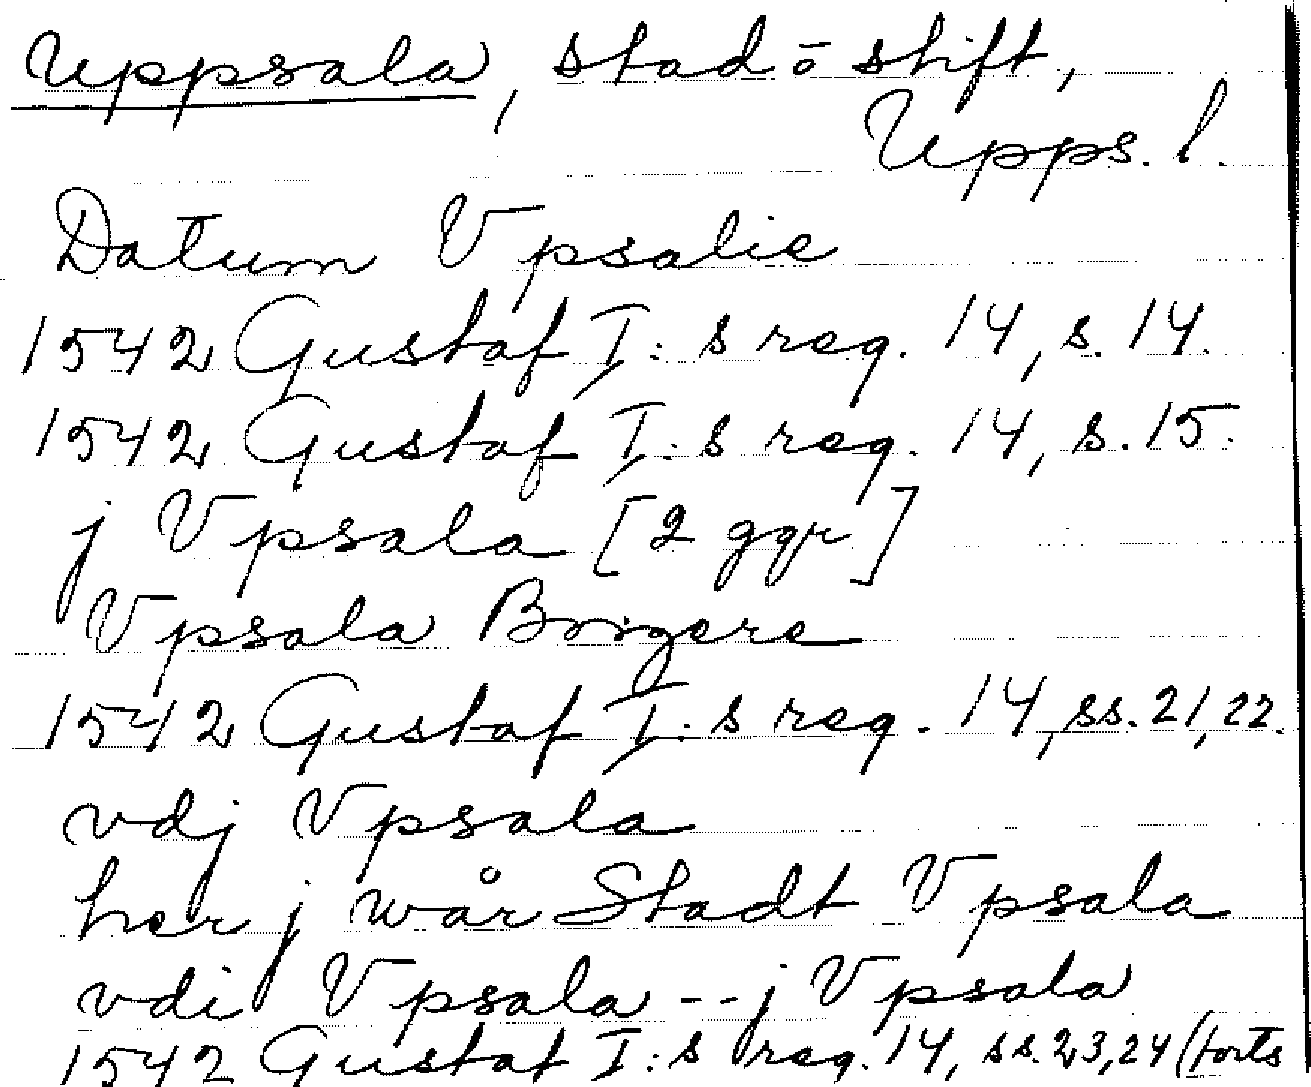 Uppsala, stad o stift,
Upps. l.
Datum Vpsalie
1542 Gustaf I:s reg. 14, s. 14.
1542 Gustaf I:s reg. 14, s. 15.
j Vpsala [2 ggr]
Vpsala Borgere
1542 Gustaf I:s reg. 14, ss. 21, 22.
vdj Vpsala
her j wår Stadt Vpsala
vdi Vpsala -- j Vpsala
1542 Gustaf I:s reg. 14, ss. 23, 24 (forts